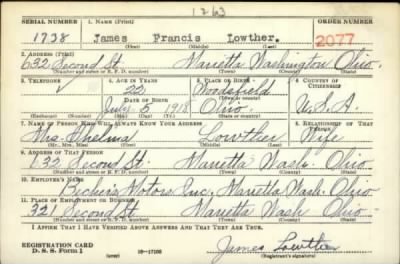 1763
SERIAL NUMBER 1. NAME (Print) ORDER NUMBER
1738 James Francis Lowther. 2077
(First) (Middle) (Last)
2. ADDRESS (Print)
632 Second St. Marietta Washington Ohio.
(Number and street or R. F. D. number) (Town) (County) (State)
3. TELEPHONE 4. AGE IN YEARS 5. PLACE OF BIRTH 6. COUNTRY OF CITIZENSHIP
22 Woodsfield
DATE OF BIRTH (Town or county)
July 5 1918 Ohio. U.S.A.
(Exchange) (Number) (Mo.) (Day) (Yr.) (State or country)
7. NAME OF PERSON WHO WILL ALWAYS KNOW YOUR ADDRESS 8. RELATIONSHIP OF THAT PERSON
Mrs. Thelma Lowther Wife
(Mr., Mrs., Miss) (First) (Middle) (Last)
9. ADDRESS OF THAT PERSON
632 Second St. Marietta Wash. Ohio
(Number and street or R. F. D. number) (Town) (County) (State)
10. EMPLOYER'S NAME
Motors Inc, Marietta Wash. Ohio
11. PLACE OF EMPLOYMENT OR BUSINESS
Second St Marietta Wash Ohio
(Number and street or R. F. D. number) (Town) (County) (State)
I AFFIRM THAT I HAVE VERIFIED ABOVE ANSWERS AND THAT THEY ARE TRUE.
REGISTRATION CARD
D. S. S. Form 1 (over) 16—17105 James Lowther
(Registrant's signature)